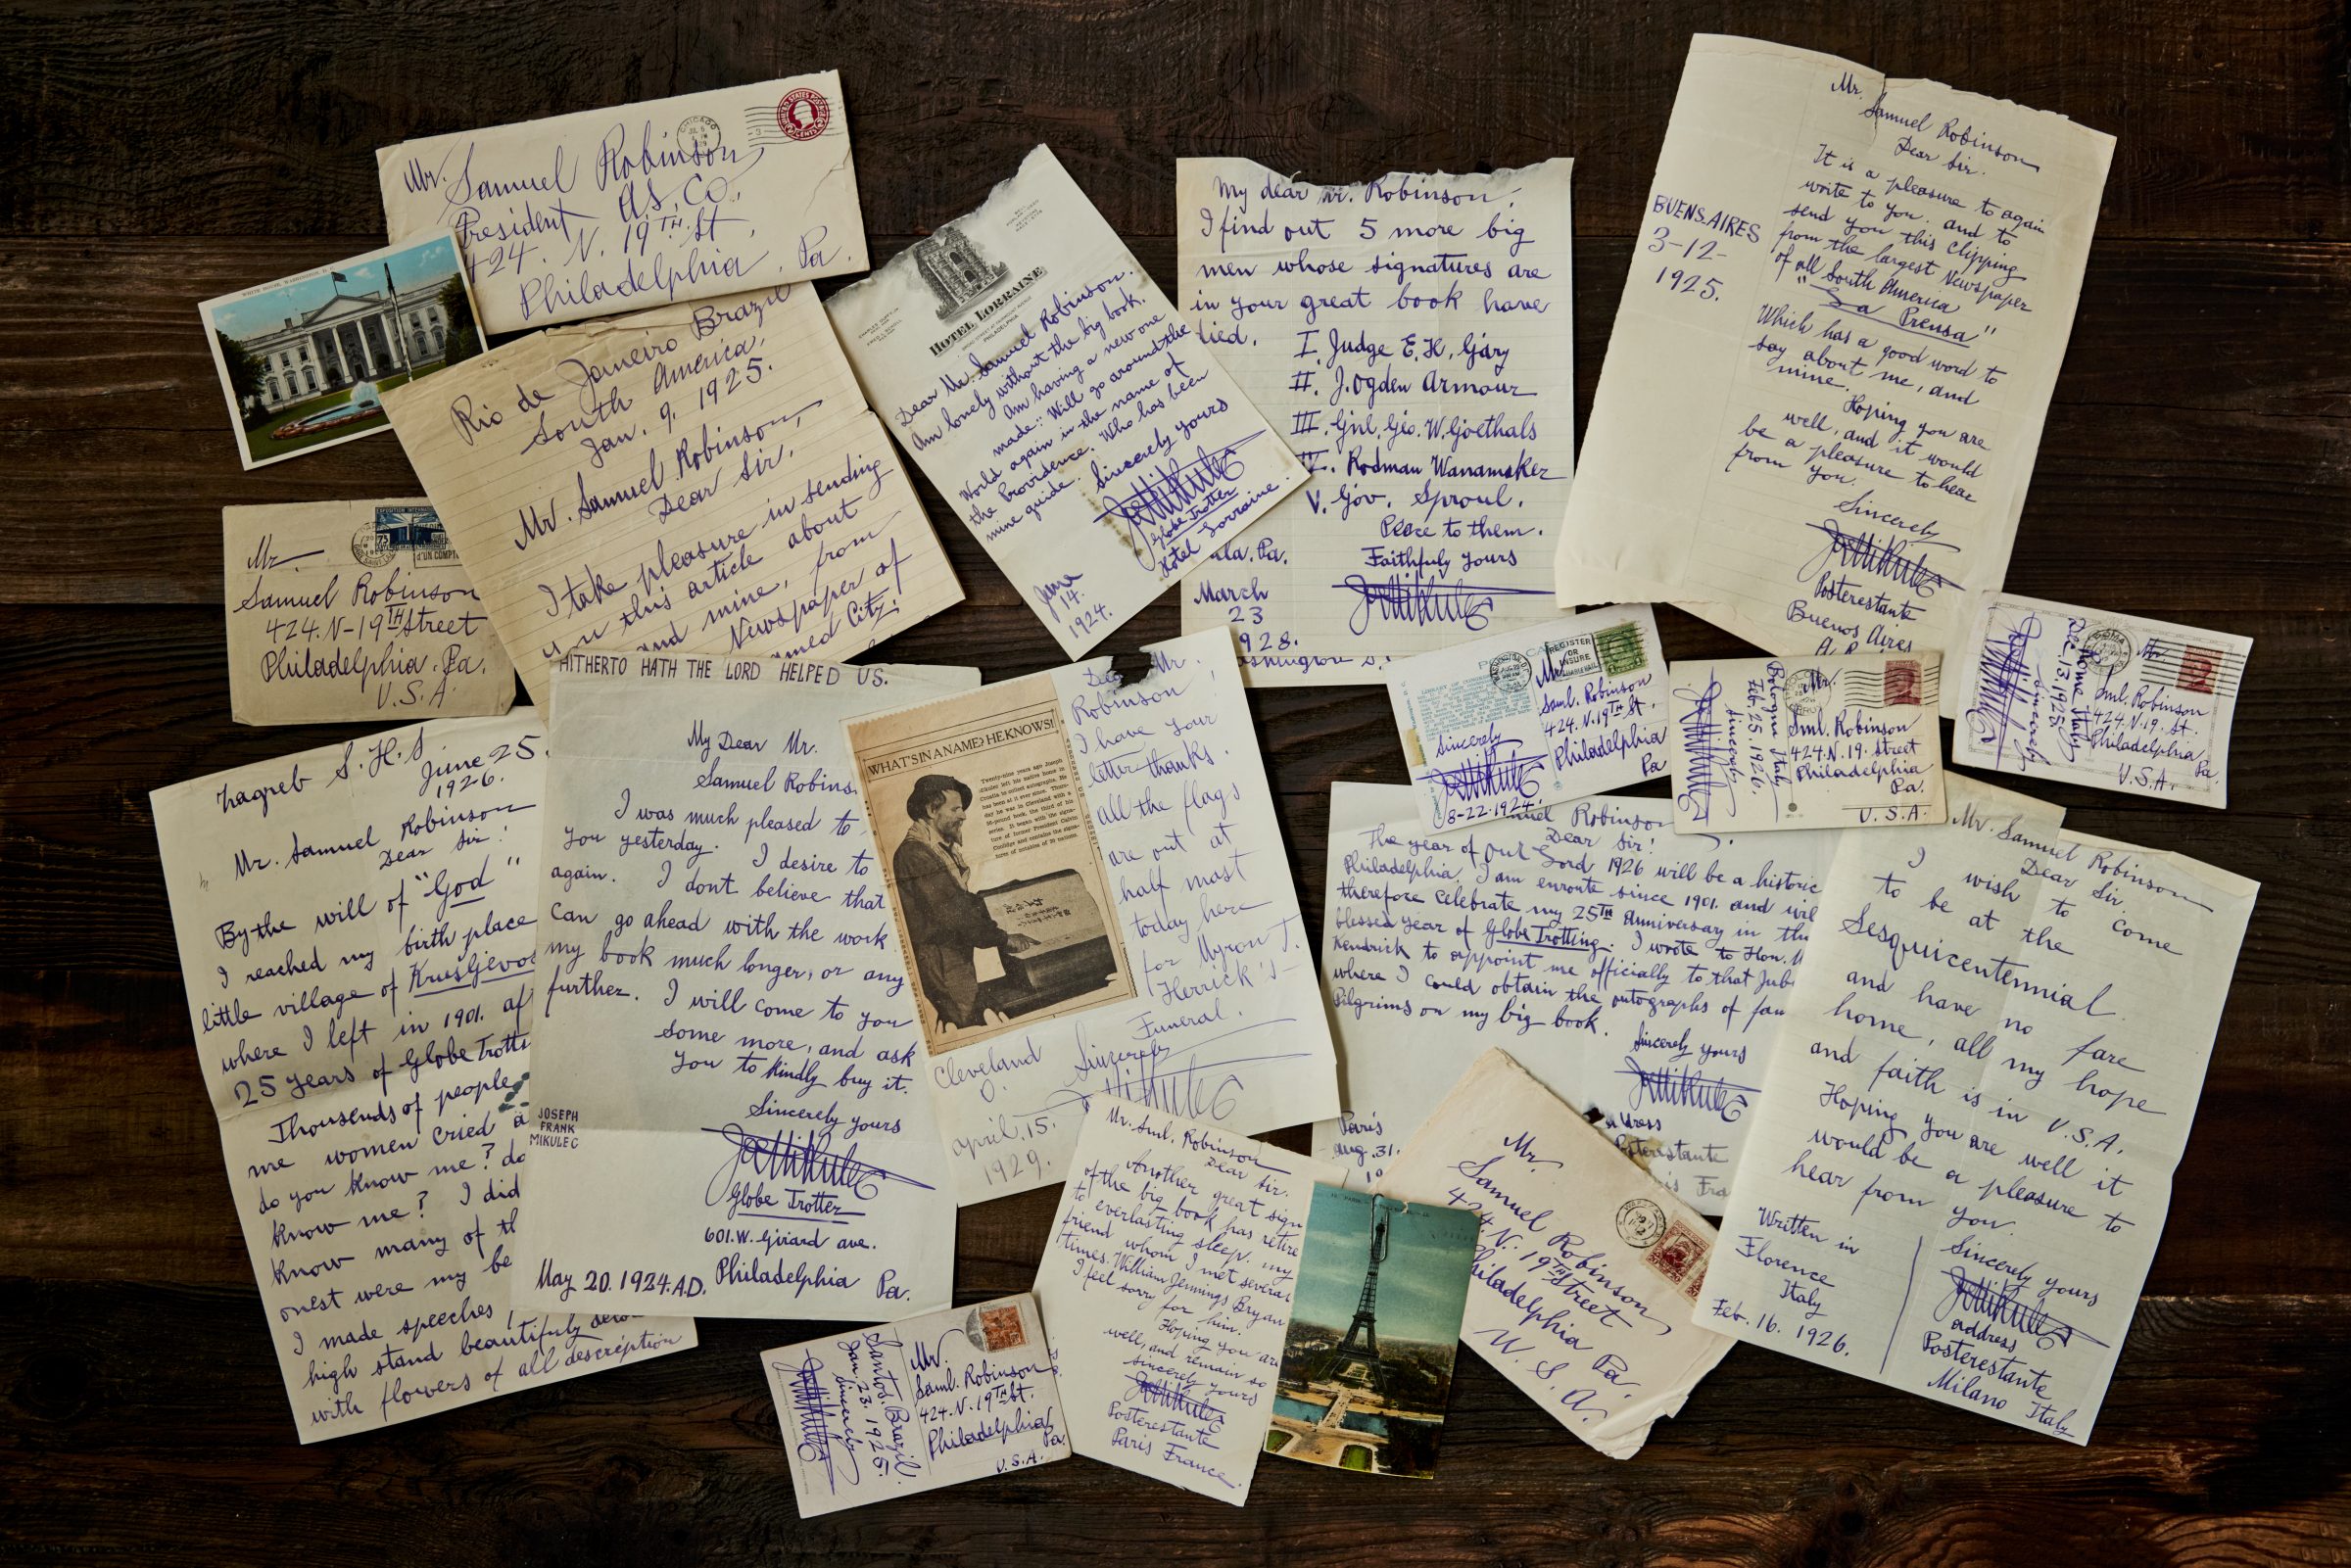 Mr. Samuel Robinson
President AS. Co.
424. N. 19TH St.
Philadelphia. Pa.
CHICAGO
UNITED STATES POSTAGE
2 CENTS
WHITE HOUSE, WASHINGTON, D.C.
Rio de Janeiro Brazil
South America.
Jan. 9. 1925.
Mr. Samuel Robinson,
Dear Sir.
I take pleasure in sending
you this article about
and mine, from
Newspaper of
named City.
HOTEL LORRAINE
PHILADELPHIA
Dear Mr. Samuel Robinson.
Am lonely without the big book.
Am having a new one
made. Will go around the
World again in the name of
the Providence. Who has been
mine guide.
Sincerely yours
Globe Trotter
Hotel Lorraine.
June
14.
1924.
My dear Mr. Robinson;
I find out 5 more big
men whose signatures are
in your great book have
died.
I. Judge E. H. Gary
II. J. Ogden Armour
III. Gnl. Geo. W. Goethals
IV. Rodman Wanamaker
V. Gov. Sproul.
Peace to them.
Faithfuly yours
Phila. Pa.
March
23
1928.
Mr.
Samuel Robinson
Dear Sir.
It is a pleasure to again
write to you. and to
send you this clipping
from the largest Newspaper
of all South America
"La Prensa"
Which has a good word to
say about me, and
mine.
Hoping you are
well, and it would
be a pleasure to hear
from you.
Sincerely
Posterestante
Buenos Aires
BUENS.AIRES
3-12-
1925.
Mr.
Samuel Robinson
424. N-19TH Street
Philadelphia. Pa.
U.S.A.
Zagreb S.H.S
June 25.
1926.
Mr. Samuel Robinson
Dear Sir!
By the will of "God"
I reached my birth place
little village of
where I left in 1901.
25 years of Globe Trotti
Thousends of people
me women cried
do you know me? do
know me? I did
know many of th
onest were my be
I made speeches
high stand beautifuly
with flowers of all description
HITHERTO HATH THE LORD HELPED US.
My Dear Mr.
Samuel Robins
I was much pleased to
you yesterday. I desire to
again. I dont believe that
can go ahead with the work
my book much longer, or any
further. I will come to you
some more, and ask
you to kindly buy it.
Sincerely yours
Globe Trotter
601. W. Girard ave.
Philadelphia Pa.
May 20. 1924. A.D.
JOSEPH
FRANK
MIKULEC
WHAT'S IN A NAME? HE KNOWS!
Dear Mr.
Robinson!
I have your
letter thanks.
all the flags
are out at
half mast
today here
for Myron T.
Herrick's
Funeral.
Sincerely
Cleveland
O.
april. 15.
1929.
REGISTER
OR
INSURE
Mr.
Saml. Robinson
424. N. 19TH St.
Philadelphia
Pa
Sincerely
8-22-1924.
Mr.
Sml. Robinson
424. N. 19. Street
Philadelphia
Pa.
U.S.A.
Bologna Italy
Feb. 25. 1926.
Sincerely
Mr.
Sml. Robinson
424. N. 19. St.
Philadelphia
Pa.
U.S.A.
Rome Italy
Dec. 13. 1925.
Sincerely
Samuel Robinson
Dear Sir!
The year of our Lord 1926 will be a historic
Philadelphia. I am enroute since 1901. and will
therefore celebrate my 25TH Anniversary in the
blessed year of Globe Trotting. I wrote to Hon.
Kendrick to appoint me officially to that Jub
where I could obtain the autographs of fam
Pilgrims on my big book.
Sincerely yours
address
Posterestante
Paris Fra
Paris
Aug. 31.
Mr. Samuel Robinson
Dear Sir,
I wish to come
to be at the
Sesquicentennial
and have no fare
home, all my hope
and faith is in U.S.A.
Hoping you are well it
would be a pleasure to
hear from you.
Written in
Florence
Italy
Feb. 16. 1926.
Sincerely yours
address
Posterestante
Milano Italy
Mr. Sml. Robinson
Dear Sir.
Another great sign
of the big book has retire
to everlasting sleep. my
friend whom I met several
times. William Jennings Bryan
I feel sorry for him.
Hoping you are
well, and remain so
sincerely yours
Posterestante
Paris France.
Mr.
Samuel Robinson
424. N. 19TH Street
Philadelphia Pa.
U.S.A.
Mr.
Saml. Robinson
424. N. 19TH St.
Philadelphia
Pa.
U.S.A.
Santos, Brazil.
Jan. 23. 1925.
Sincerely